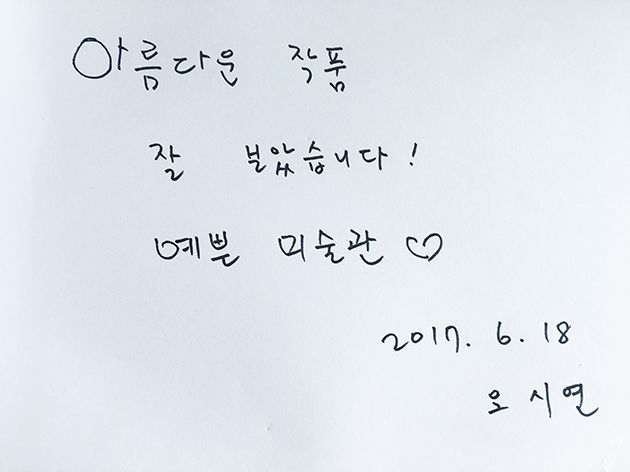 아름다운 작품
잘 보았습니다!
예쁜 미술관 ♡
2017. 6. 18
오시연